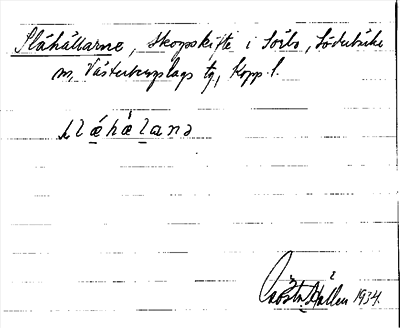 Slåhällarne, skogsskifte i Sörbo, Söderbärke
m, Västerbergslags tg, Kopp. l.
slåhälanə
Gösta Hallén 1934.